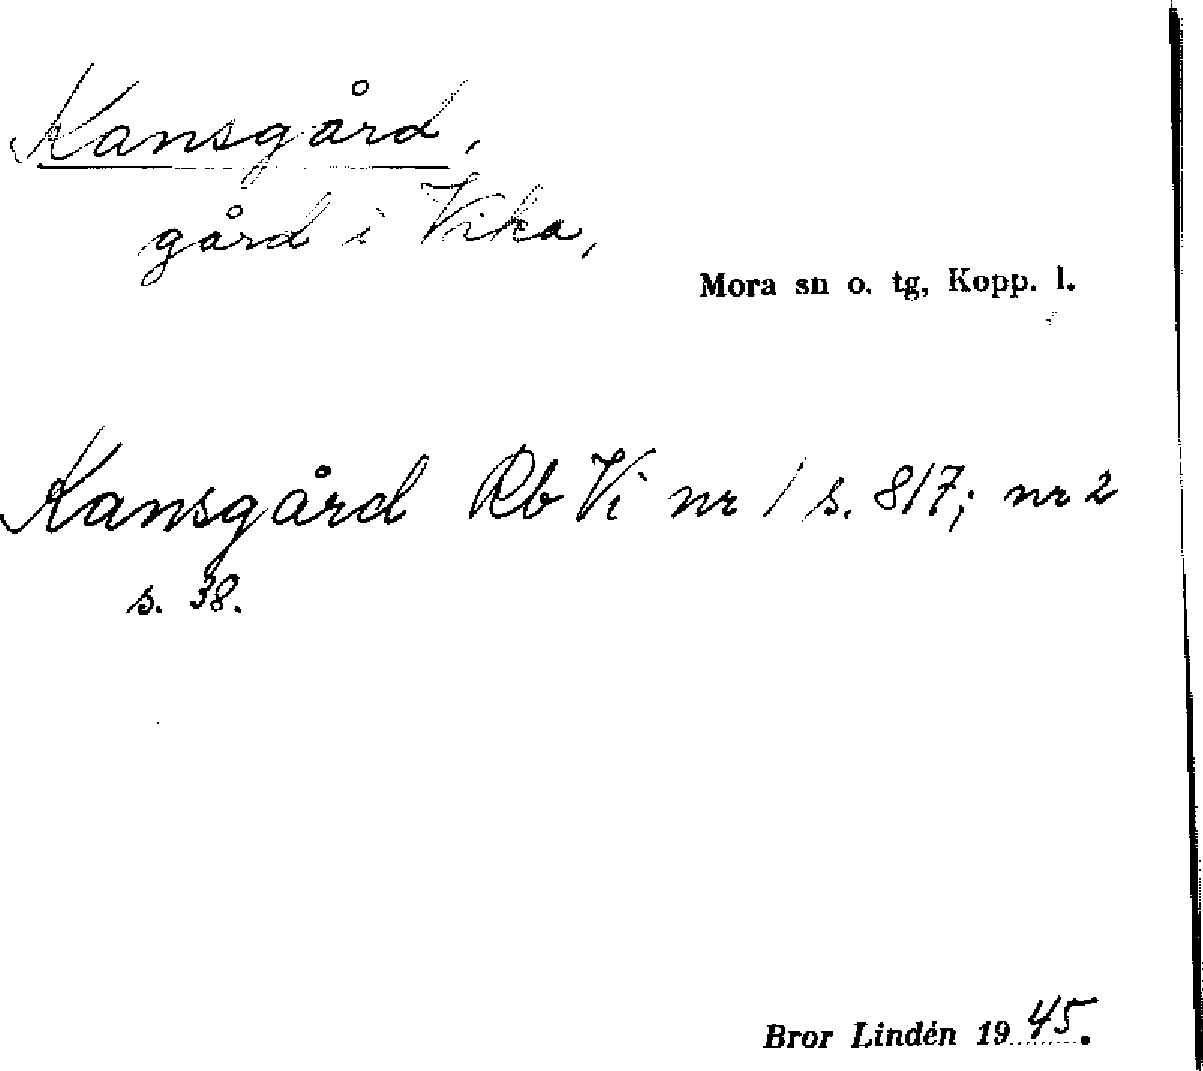 Kansgård,
gård i Vika,
Mora sn o. tg, Kopp. l.
Kansgård Rb Vi nr 1 s. 817; nr 2
s. 38.
Bror Lindén 1945.